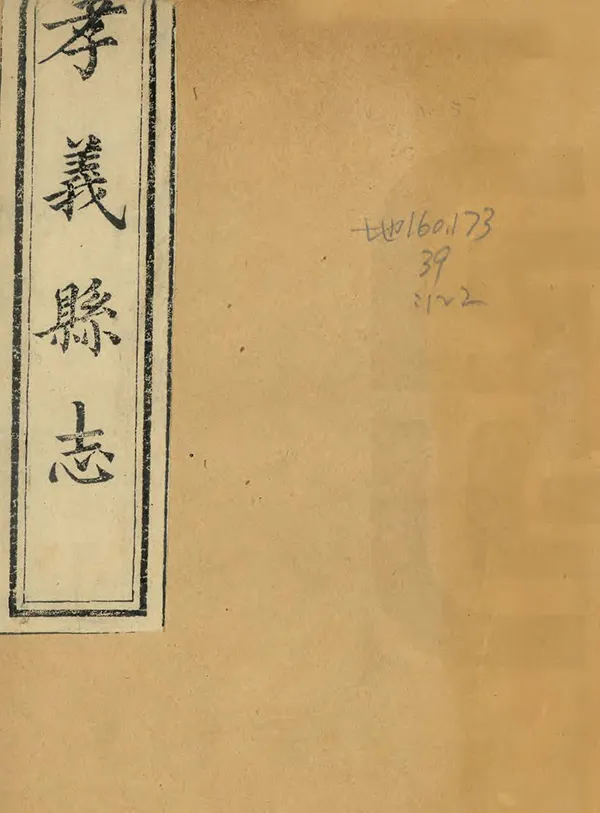 孝義縣志
地160.173
39